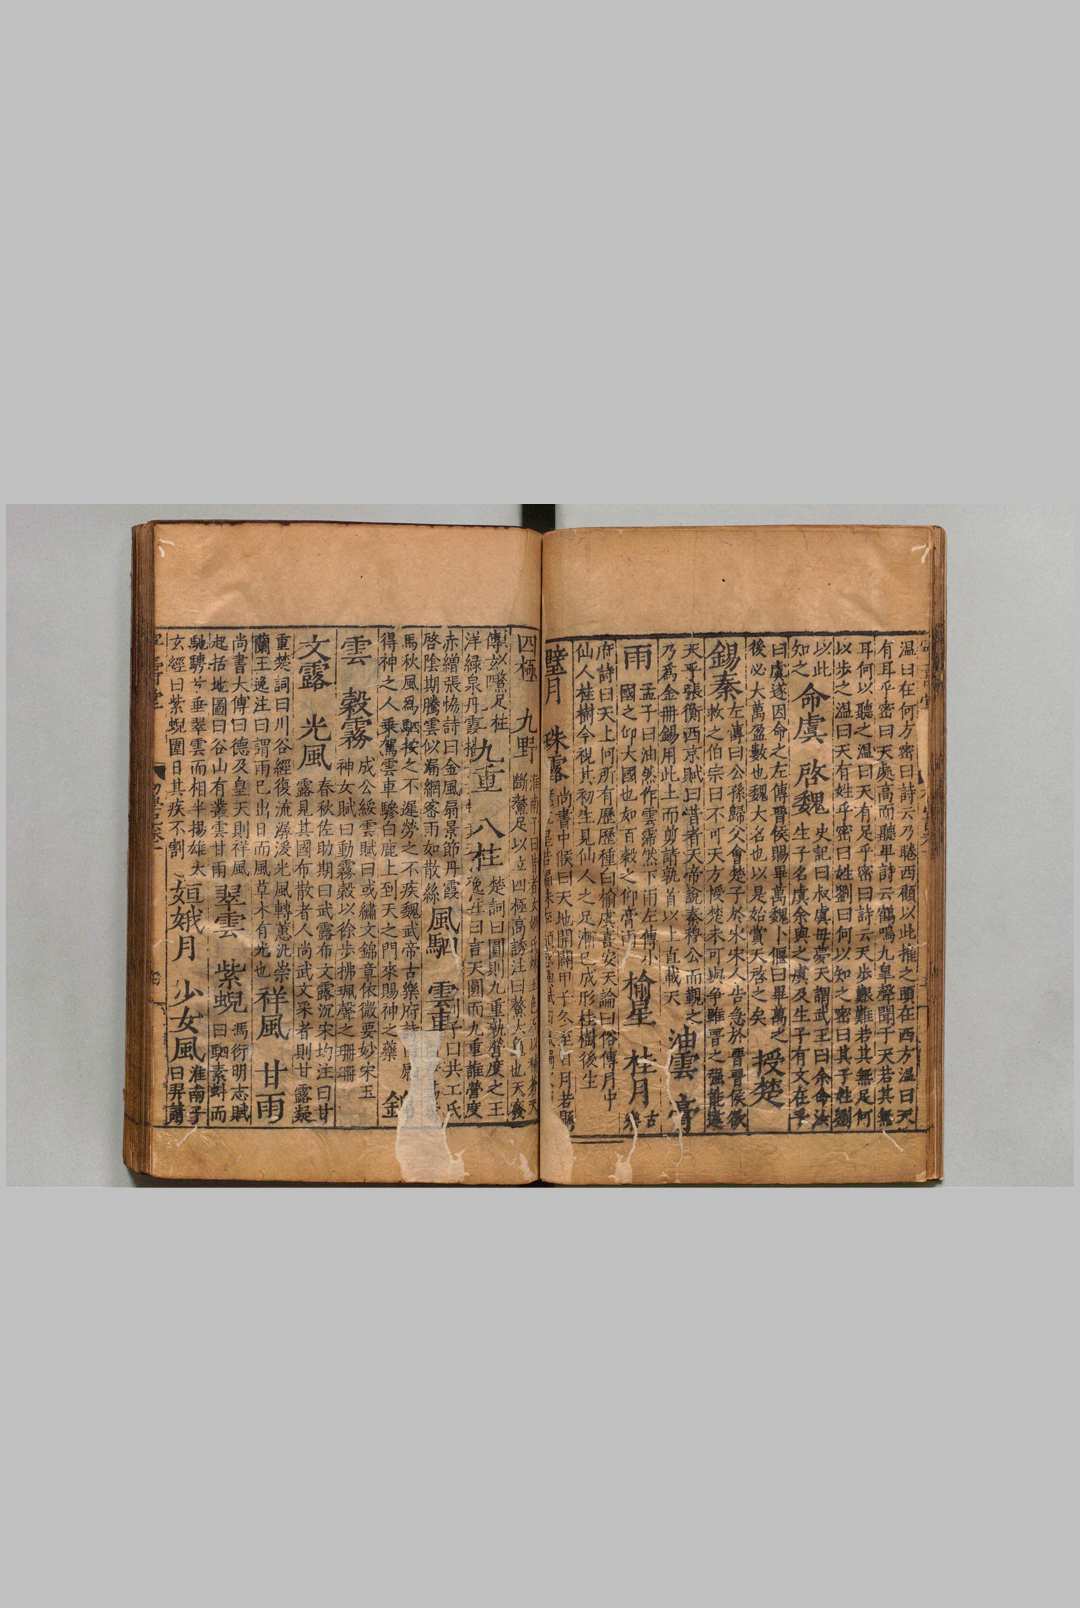 温曰在何方密曰詩云乃睠西顧以此推之頭在西方温曰天
有耳乎密曰天處高而聽卑詩云鶴鳴九皐聲聞于天若其無
耳何以聽之温曰天有足乎密曰詩云天步艱難若其無足何
以步之温曰天有姓乎密曰姓劉曰何以知之密曰其子姓劉
以此知之
命虞 啓魏
史記曰叔虞母夢天謂武王曰余命汝
生子名虞余與之虞及生子有文在手
曰虞遂因命之左傳晉侯賜畢萬魏卜偃曰畢萬之
後必大萬盈數也魏大名也以是始賞天啓之矣
授楚
錫秦
左傳曰公孫歸父會楚子於宋宋人告急於晉晉侯欲
救之伯宗曰不可天方授楚未可與争雖晉之強能違
天乎張衡西京賦曰昔者天帝說秦穆公而覲之
乃為金冊錫用此土而剪諸鶉首以上直載天
油雲 膏
雨
孟子曰油然作雲霈然下雨左傳小
國之仰大國也如百穀之仰膏雨
榆星 桂月
古樂
府詩曰天上何所有歷歷種白榆虞喜安天論曰俗傳月中
仙人桂樹今視其初生見仙人之足漸已成形桂樹後生
璧月 珠露
尚書中候曰天地開闢甲子冬至日月若懸
四極 九野
斷鼇足以立四極高誘注曰鼇大龜也天廢
傳以鼇足柱
九重 八桂
楚詞曰圜則九重孰營度之王
逸注曰言天圜而九重誰營度
洋綠泉丹霞
赤繒張恊詩曰金風扇景節丹霞
啓陰期騰雲似涌網密雨如散絲
風駟 雲車
列子曰共工氏
馬秋風為駟按之不遲勞之不疾魏武帝古樂府詩
得神之人乗駕雲車驂白鹿上到天之門來賜神之藥
錦
雲 縠霧
成公綏雲賦曰或繡文錦章依微要妙宋玉
神女賦曰動霧縠以徐步拂珮聲之珊珊
文露 光風
春秋佐助期曰武露布文露沉宋均注曰甘
露見其國布散者人尚武文采者則甘露凝
重楚詞曰川谷經復流潺湲光風轉蕙汎崇
蘭王逸注曰謂雨已出日而風草木有光也
祥風 甘雨
尚書大傅曰德及皇天則祥風
起括地圖曰谷山有叢雲甘雨
翠雲 紫蜺
馮衍明志賦
曰駟素虯而
馳騁兮垂翠雲而相半揚雄太
玄經曰紫蜺圍日其疾不割
姮娥月 少女風
淮南子
曰羿請